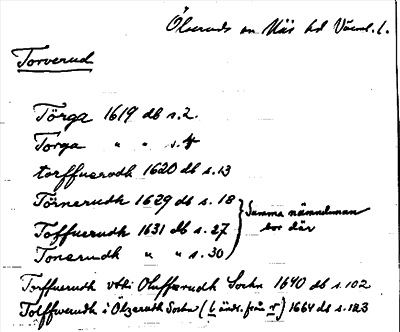 Ölseruds sn Näs hd Värml. l.
Torverud
Törga 1619 db s. 2.
Torga " " s. 4
torffuerodh 1620 db s. 13
Törnerudh 1629 db s. 18
Toffuerudh 1631 db s. 27
Tonerudh " " s. 30
Samma nämndeman
bor där
Torffuerudh vthi Oluffzerudh Sochn 1640 db s. 102
Tolffuerudh i Ölzerudh Sochn (l ändr. från r) 1664 db s. 123